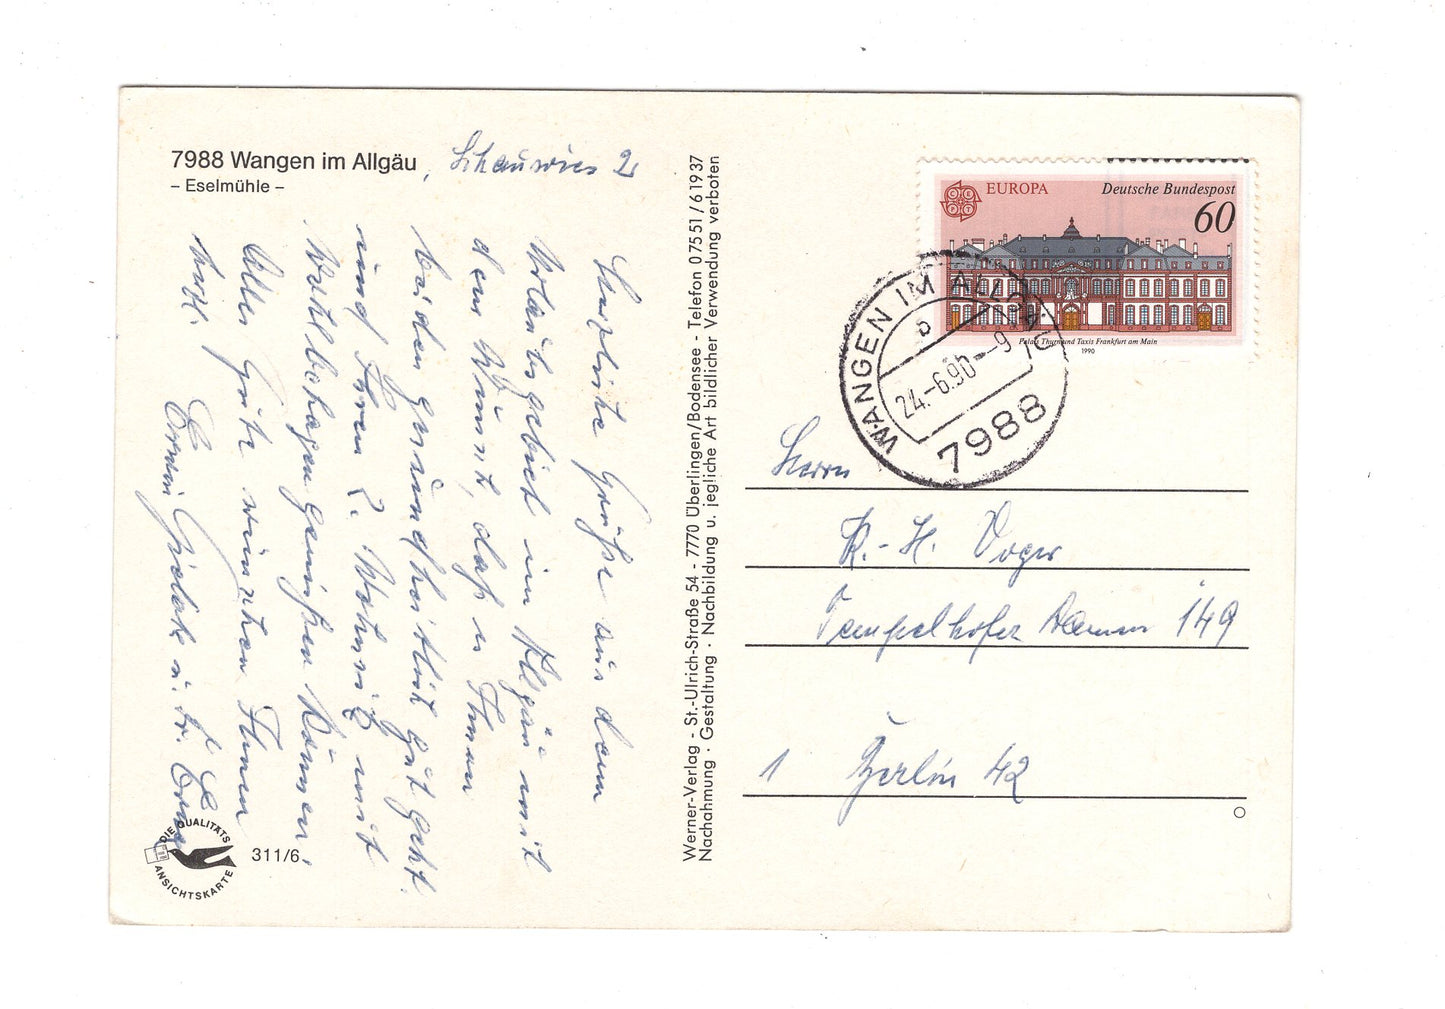 7988 Wangen im Allgäu, Schauwies 2
– Eselmühle –
Herzliche Grüße aus dem
Urlaubsgebiet im Allgäu mit
dem Wunsch, daß es Ihnen
beiden gesundheitlich gut geht
und Ihren 2. Wohnsitz mit
Wohlbehagen genießen können.
Alles Gute wünschen Ihnen
Erwin u. Fr. Erna
DIE QUALITÄTS
ANSICHTSKARTE
311/6
Werner-Verlag - St.-Ulrich-Straße 54 - 7770 Überlingen/Bodensee - Telefon 07551/61937
Nachahmung · Gestaltung · Nachbildung u. jegliche Art bildlicher Verwendung verboten
EUROPA
CEPT
Deutsche Bundespost
60
Palais Thurn und Taxis Frankfurt am Main
1990
WANGEN IM ALLGÄU
b
24.-6.90--9
7988
Herrn
K.-H. Voger
Tempelhofer Damm 149
1 Berlin 42